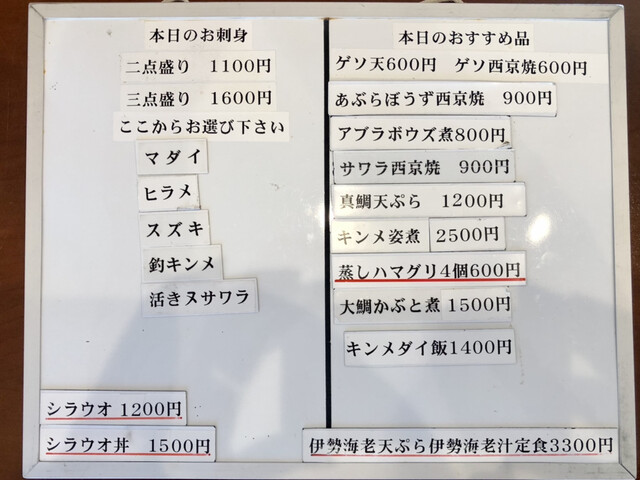 本日のお刺身
二点盛り 1100円
三点盛り 1600円
ここからお選び下さい
マダイ
ヒラメ
スズキ
釣キンメ
活きヌサワラ
シラウオ 1200円
シラウオ丼 1500円
本日のおすすめ品
ゲソ天600円 ゲソ西京焼600円
あぶらぼうず西京焼 900円
アブラボウズ煮800円
サワラ西京焼 900円
真鯛天ぷら 1200円
キンメ姿煮 2500円
蒸しハマグリ4個600円
大鯛かぶと煮1500円
キンメダイ飯1400円
伊勢海老天ぷら伊勢海老汁定食3300円